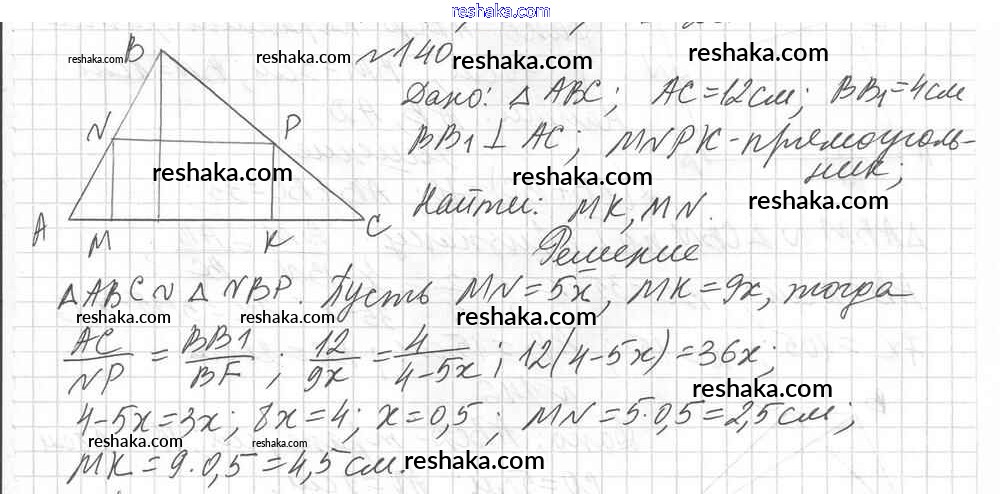 reshaka.com
B reshaka.com №140 reshaka.com
reshaka.com reshaka.com
Дано: △ABC; AC=12см; BB₁=4см
N P BB1⊥AC; MNPK-прямоуголь-
reshaka.com reshaka.com ник;
A M K C Найти: MK, MN. reshaka.com
Решение
△ABC ~ △NBP. Пусть MN=5x, MK=9x, тогда
reshaka.com reshaka.com reshaka.com
AC/NP = BB1/BF; 12/9x = 4/4-5x; 12(4-5x)=36x;
reshaka.com
4-5x=3x; 8x=4; x=0,5; MN=5·0,5=2,5см;
reshaka.com reshaka.com
MK=9·0,5=4,5см. reshaka.com